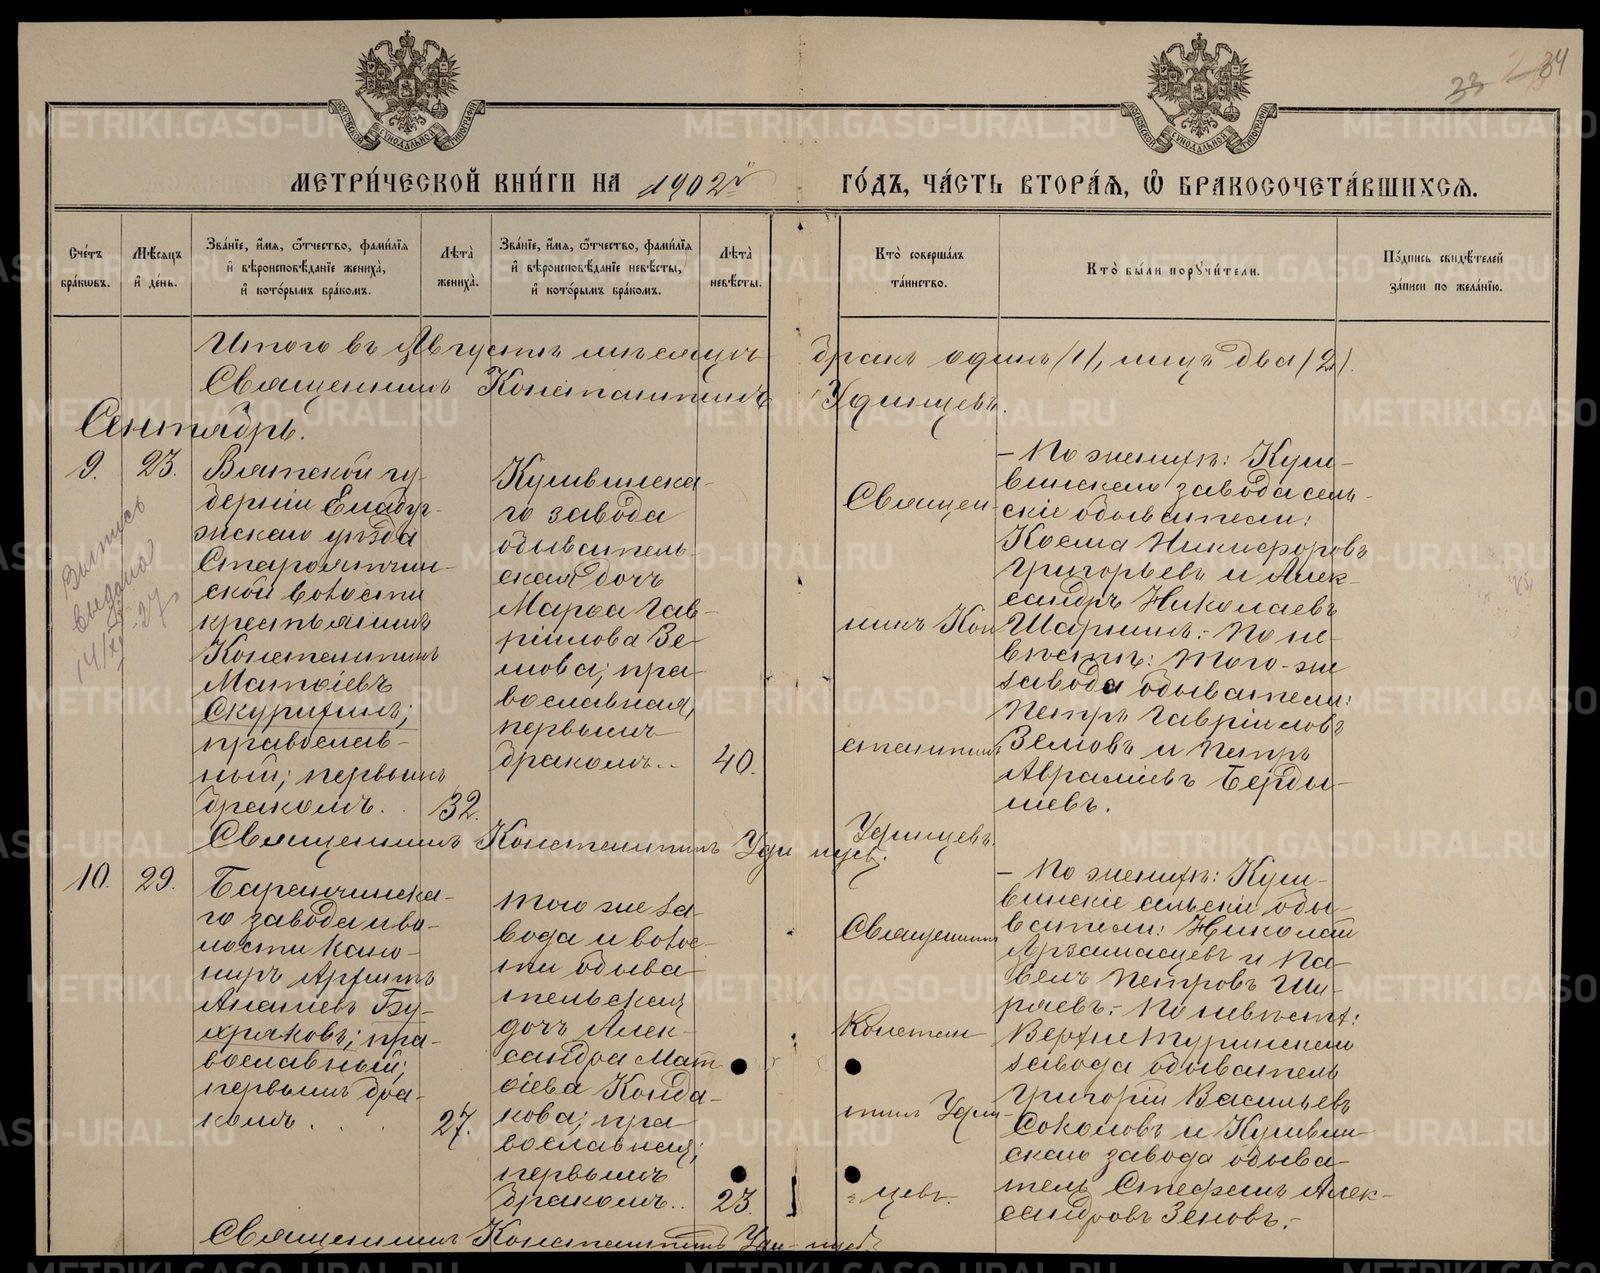 33 34
МЕТРИ́ЧЕСКОЙ КНИ́ГИ НА 1902й ГО́ДЪ, ЧА́СТЬ ВТОРА́Ѧ, Ѽ БРАКОСОЧЕТА́ВШИХСѦ.
Сче́тъ бра́кѡвъ.
Мѣ́сѧцъ и҆ де́нь.
Зва́нїе, и҆́мѧ, ѻ҆́тчество, фами́лїѧ и҆ вѣроисповѣ́данїе жениха̀, и҆ кото́рымъ бра́комъ.
Лѣта̀ жениха̀.
Зва́нїе, и҆́мѧ, ѻ҆́тчество, фами́лїѧ и҆ вѣроисповѣ́данїе невѣ́сты, и҆ кото́рымъ бра́комъ.
Лѣта̀ невѣ́сты.
Кто̀ соверша́лъ та́инство.
Кто̀ бы́ли порꙋчи́тели.
По́дпись свидѣ́телей за́писи по жела́нїю.
Итого въ Августѣ мѣсяцѣ бракъ одинъ (1), лицъ два (2).
Священникъ Константинъ Удинцевъ.
Сентябрь.
9.
23.
Вятской гу-
берніи Елабу-
жскаго уѣзда
Старо
ской волости
крестьянинъ
Константинъ
Матѳіевъ
Скурихинъ;
православ-
ный; первымъ
бракомъ. .
32.
Кушвинска-
го завода
обыватель-
ская дочь
Марѳа Гав-
ріилова Зе-
мова; пра-
вославная,
первымъ
бракомъ. .
40.
Священ-
никъ Кон
стантинъ
Удинцевъ.
– По женихѣ: Куш-
винскаго завода сель-
скіе обыватели:
Косма Никифоровъ
Григорьевъ и Алек-
сандръ Николаевъ
Шаринъ.– По не-
вѣстѣ: того-же
завода обыватели:
Петръ Гавріиловъ
Земовъ и Петръ
Авраміевъ Берды-
шевъ.
Выпись
выдана
14/XI-27.
Священникъ Константинъ Удинцевъ.
10.
29.
Баранчинска-
го завода и во-
лости кано-
ниръ Архипъ
Ананіевъ Бу-
хряковъ; пра-
вославный;
первымъ бра-
комъ . . .
27.
того же за-
вода и волос-
ти обыва-
тельская
дочь Алек-
сандра Мат
ѳіева Конда-
кова; пра-
вославная;
первымъ
бракомъ. .
23.
Священникъ
Констан
тинъ Удин-
цевъ.
– По женихѣ: Куш-
винскіе сельскіе обы-
ватели: Николай
Арзамасцевъ и Па-
велъ Петровъ Ши-
ряевъ.– По невѣстѣ:
Верхнетуринскаго
завода обыватель
Григорій Васильевъ
Соколовъ и Кушвин-
скаго завода обыва-
тель Стефанъ Алек-
сандровъ Зеновъ.–
Священникъ Константинъ Удинцевъ
METRIKI.GASO-URAL.RU